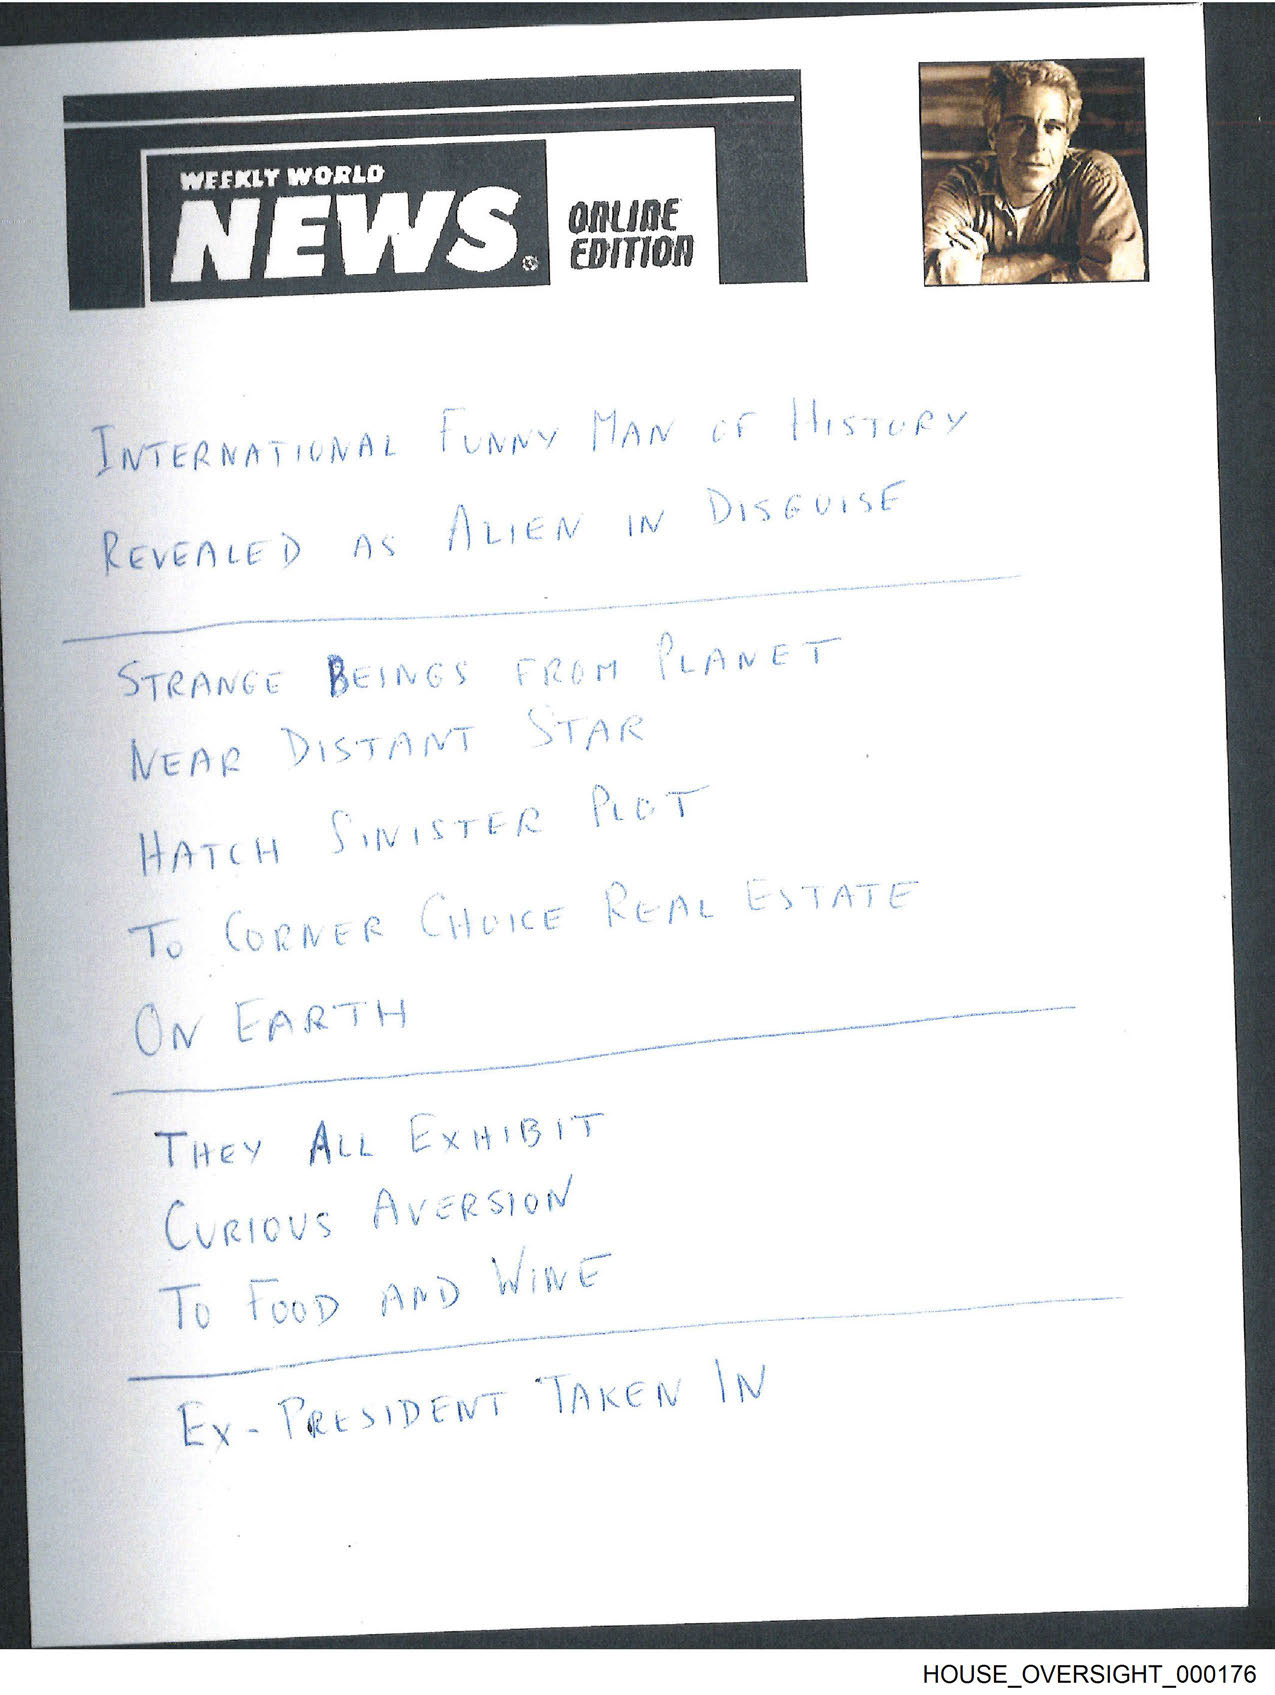 WEEKLY WORLD
NEWS®
ONLINE
EDITION
INTERNATIONAL FUNNY MAN OF HISTORY
REVEALED AS ALIEN IN DISGUISE
STRANGE BEINGS FROM PLANET
NEAR DISTANT STAR
HATCH SINISTER PLOT
TO CORNER CHOICE REAL ESTATE
ON EARTH
THEY ALL EXHIBIT
CURIOUS AVERSION
TO FOOD AND WINE
EX-PRESIDENT TAKEN IN
HOUSE_OVERSIGHT_000176